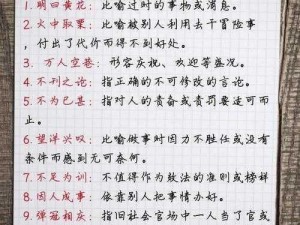 1. 明日黄花：比喻过时的事物或消息。
2. 火中取栗：比喻被别人利用去干冒险事
，付出了代价而得不到好处。
3. 万人空巷：形容庆祝、欢迎等盛况。
4. 不刊之论：指正确的不可修改的言论。
5. 不为已甚：指对人的责备或责罚要适可而
止。
6. 望洋兴叹：比喻做事时因力不胜任或没有
条件而感到无可奈何。
7. 不足为训：不值得作为效法的准则或榜样
8. 因人成事：依靠别人把事情办好。
9. 弹冠相庆：指旧社会官场中一人当了官或